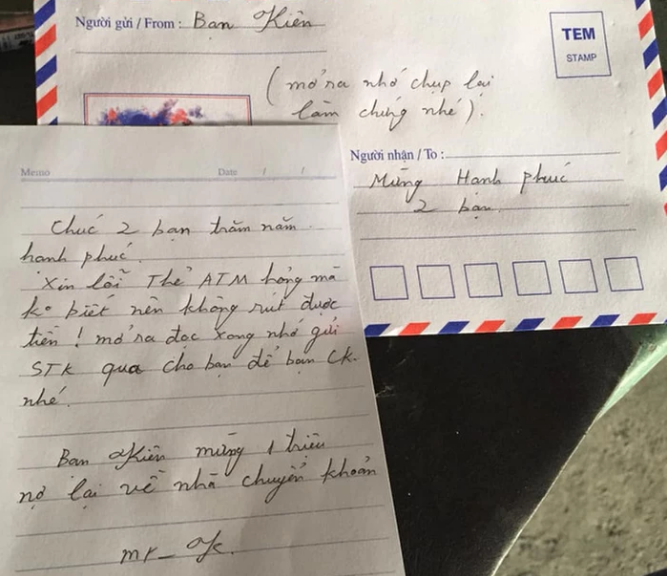 Người gửi / From : Bạn Kiên
TEM
STAMP
( mở ra nhớ chụp lại
làm chứng nhé ).
Người nhận / To :
Mừng Hạnh phúc
2 bạn
Memo Date / /
Chúc 2 bạn trăm năm
hạnh phúc.
Xin lỗi Thẻ ATM hỏng mà
ko biết nên không rút được
tiền ! mở ra đọc xong nhớ gửi
STK qua cho bạn để bạn CK.
nhé.
Bạn Kiên mừng 1 triệu
nợ lại về nhà chuyển khoản
mr_ K.